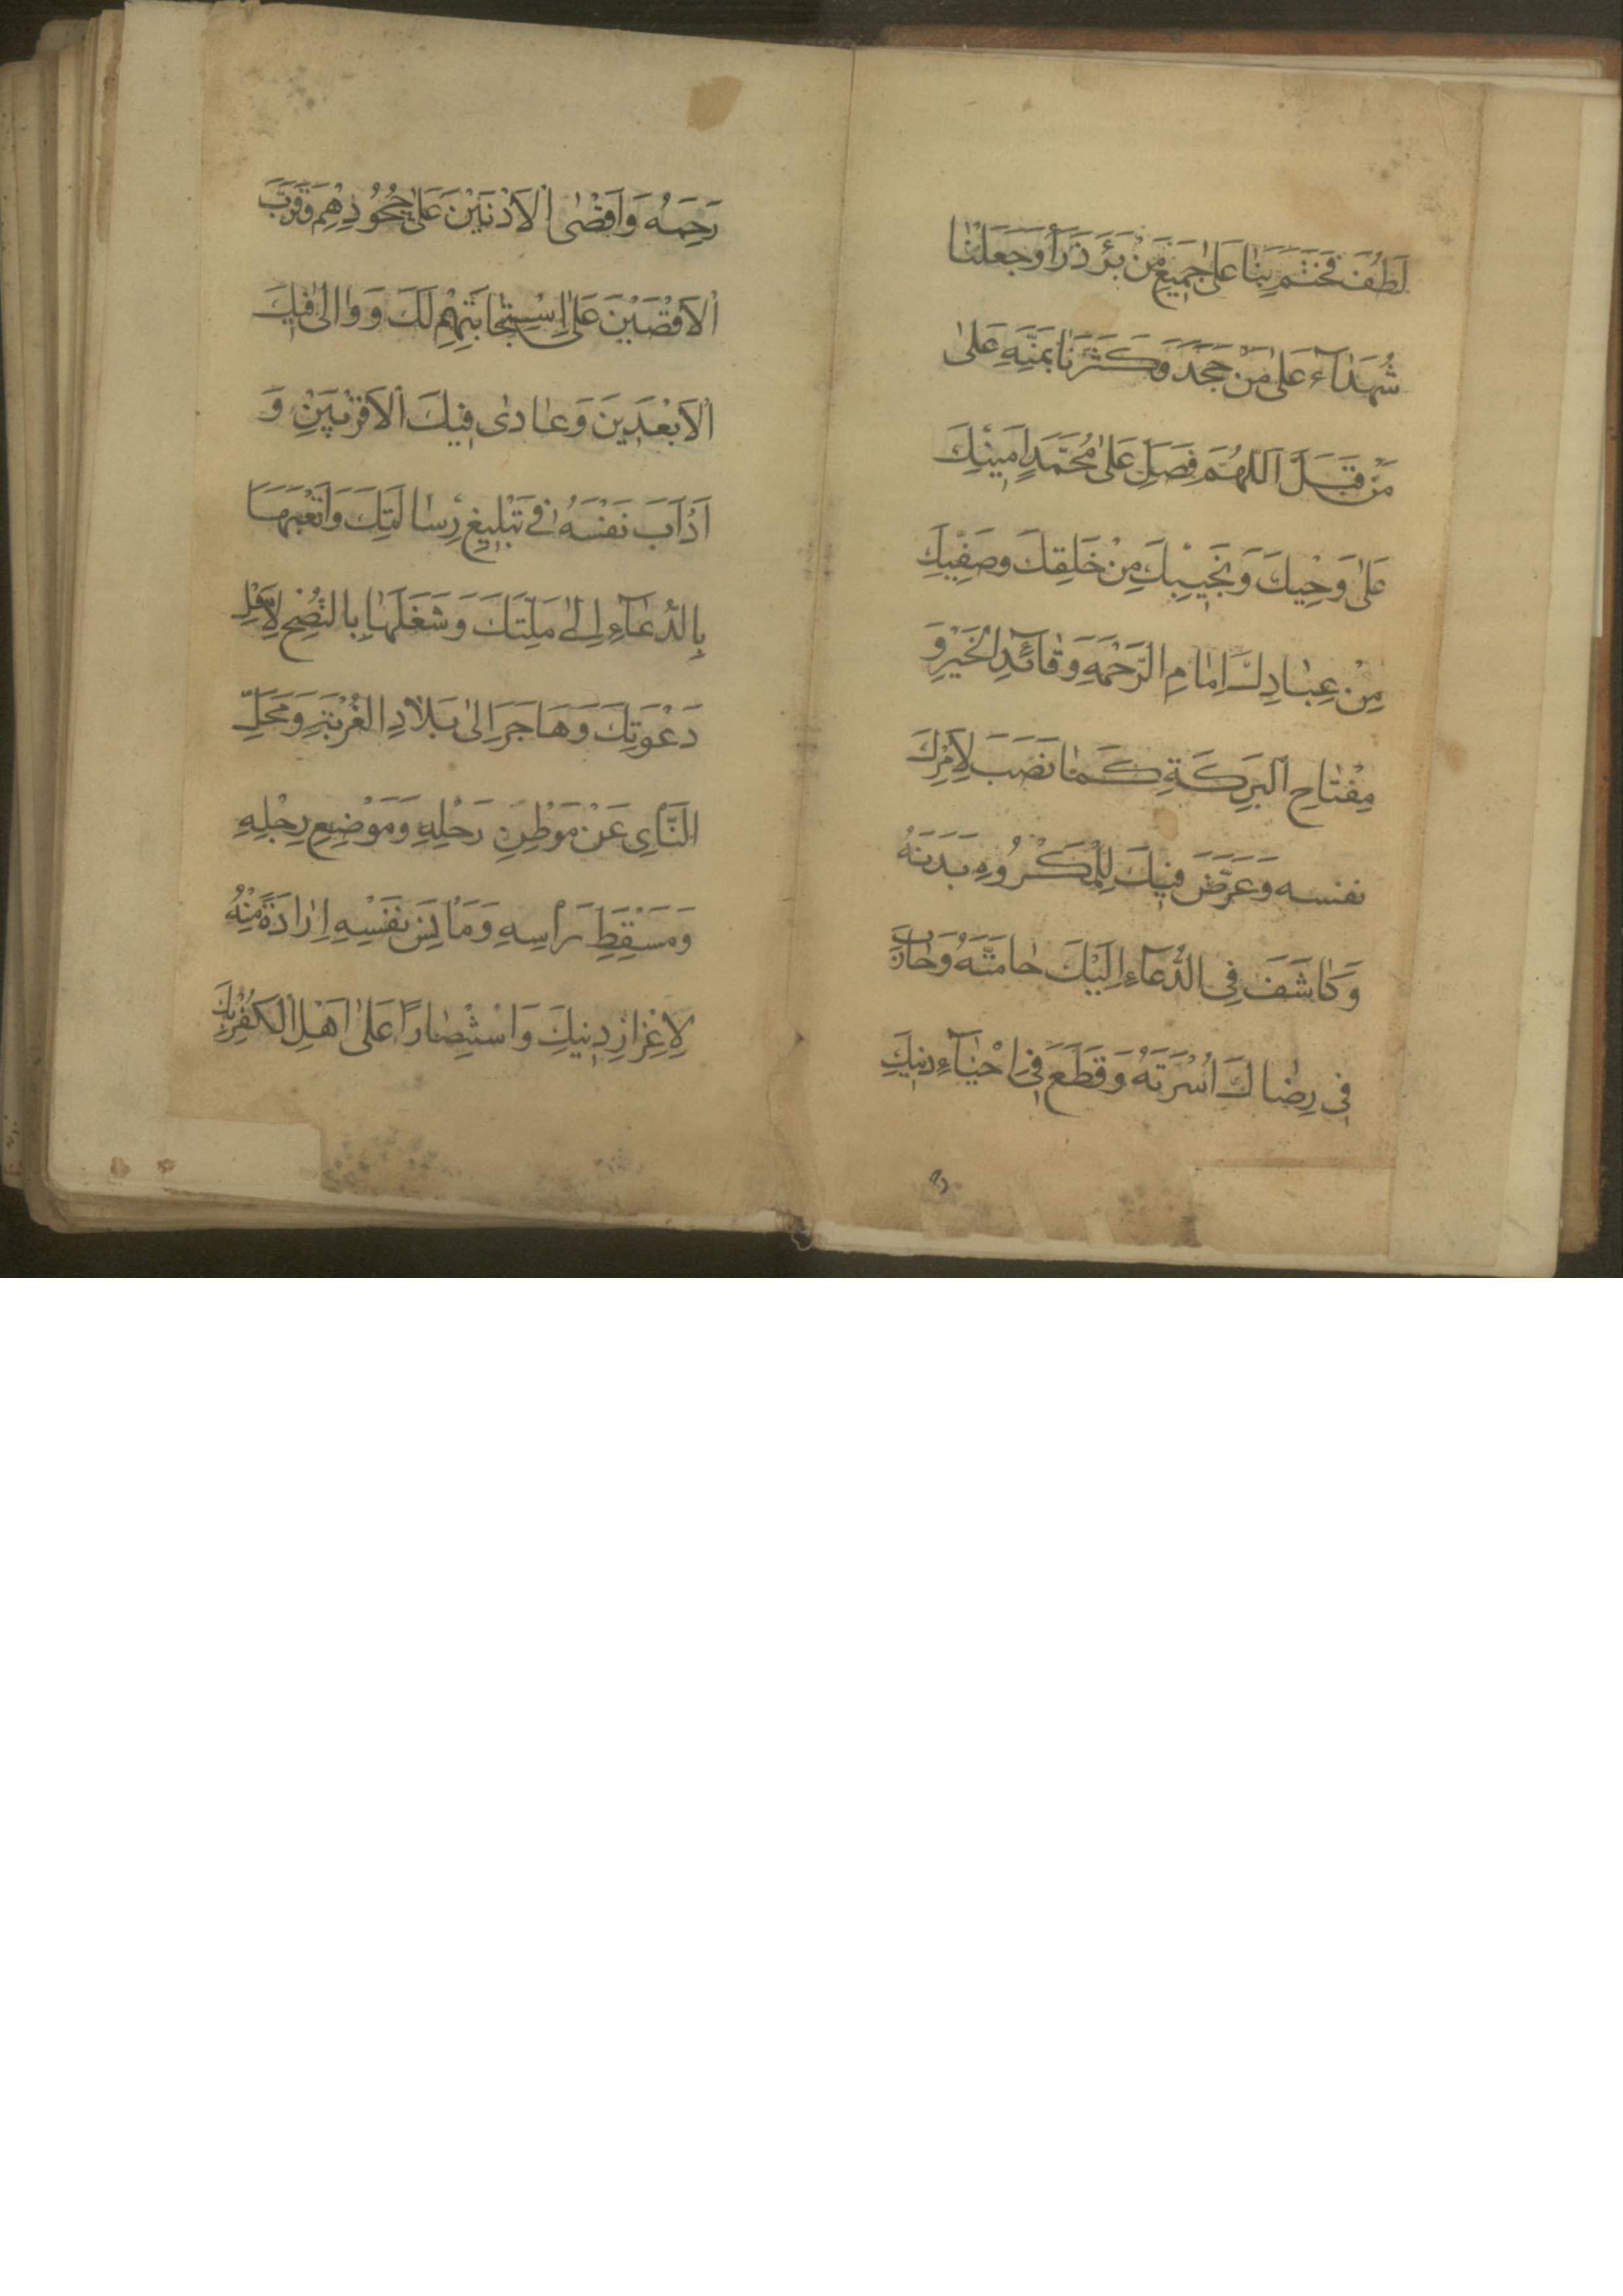 لَطُفَ فَخَتَمَ بِنَا عَلىٰ جَمِيعِ مَنْ ذَرَأَ وَجَعَلَنَا
شُهَدَآءَ عَلىٰ مَنْ جَحَدَ وَكَثَّرَنَا بِمَنِّهِ عَلىٰ
مَنْ قَلَّ اَللّٰهُمَّ فَصَلِّ عَلىٰ مُحَمَّدٍ اَمِينِكَ
عَلىٰ وَحْيِكَ وَنَجِيبِكَ مِنْ خَلْقِكَ وَصَفِيِّكَ
مِنْ عِبَادِكَ اِمَامِ الرَّحْمَةِ وَقَائِدِ الْخَيْرِ وَ
مِفْتَاحِ الْبَرَكَةِ كَمَا نَصَبَ لِاَمْرِكَ
نفسه وَعَرَّضَ فِيكَ لِلْمَكْرُوهِ بَدَنَهُ
وَكَاشَفَ فِي الدُّعَآءِ اِلَيْكَ حَامَّتَهُ وَحَارَبَ
فِي رِضَاكَ اُسْرَتَهُ وَقَطَعَ فِي اِحْيَآءِ دِينِكَ
رَحِمَهُ وَاَقْصَى الْاَدْنَيْنَ عَلىٰ جُحُودِهِمْ وَقَرَّبَ
الْاَقْصَيْنَ عَلىٰ اسْتِجَابَتِهِمْ لَكَ وَ وَالىٰ فِيكَ
الْاَبْعَدِينَ وَعَادىٰ فِيكَ الْاَقْرَبِينَ وَ
اَدْاَبَ نَفْسَهُ فِي تَبْلِيغِ رِسَالَتِكَ وَاَتْعَبَهَا
بِالدُّعَآءِ اِلىٰ مِلَّتِكَ وَشَغَلَهَا بِالنُّصْحِ لِاَهْلِ
دَعْوَتِكَ وَهَاجَرَ اِلىٰ بِلَادِ الْغُرْبَةِ وَمَحَلِّ
النَّأْيِ عَنْ مَوْطِنِ رَحْلِهِ وَمَوْضِعِ رِجْلِهِ
وَمَسْقَطِ رَأْسِهِ وَمَأْنَسِ نَفْسِهِ اِرَادَةً مِنْهُ
لِاِعْزَازِ دِينِكَ وَاسْتِنْصَارًا عَلىٰ اَهْلِ الْكُفْرِ بِكَ